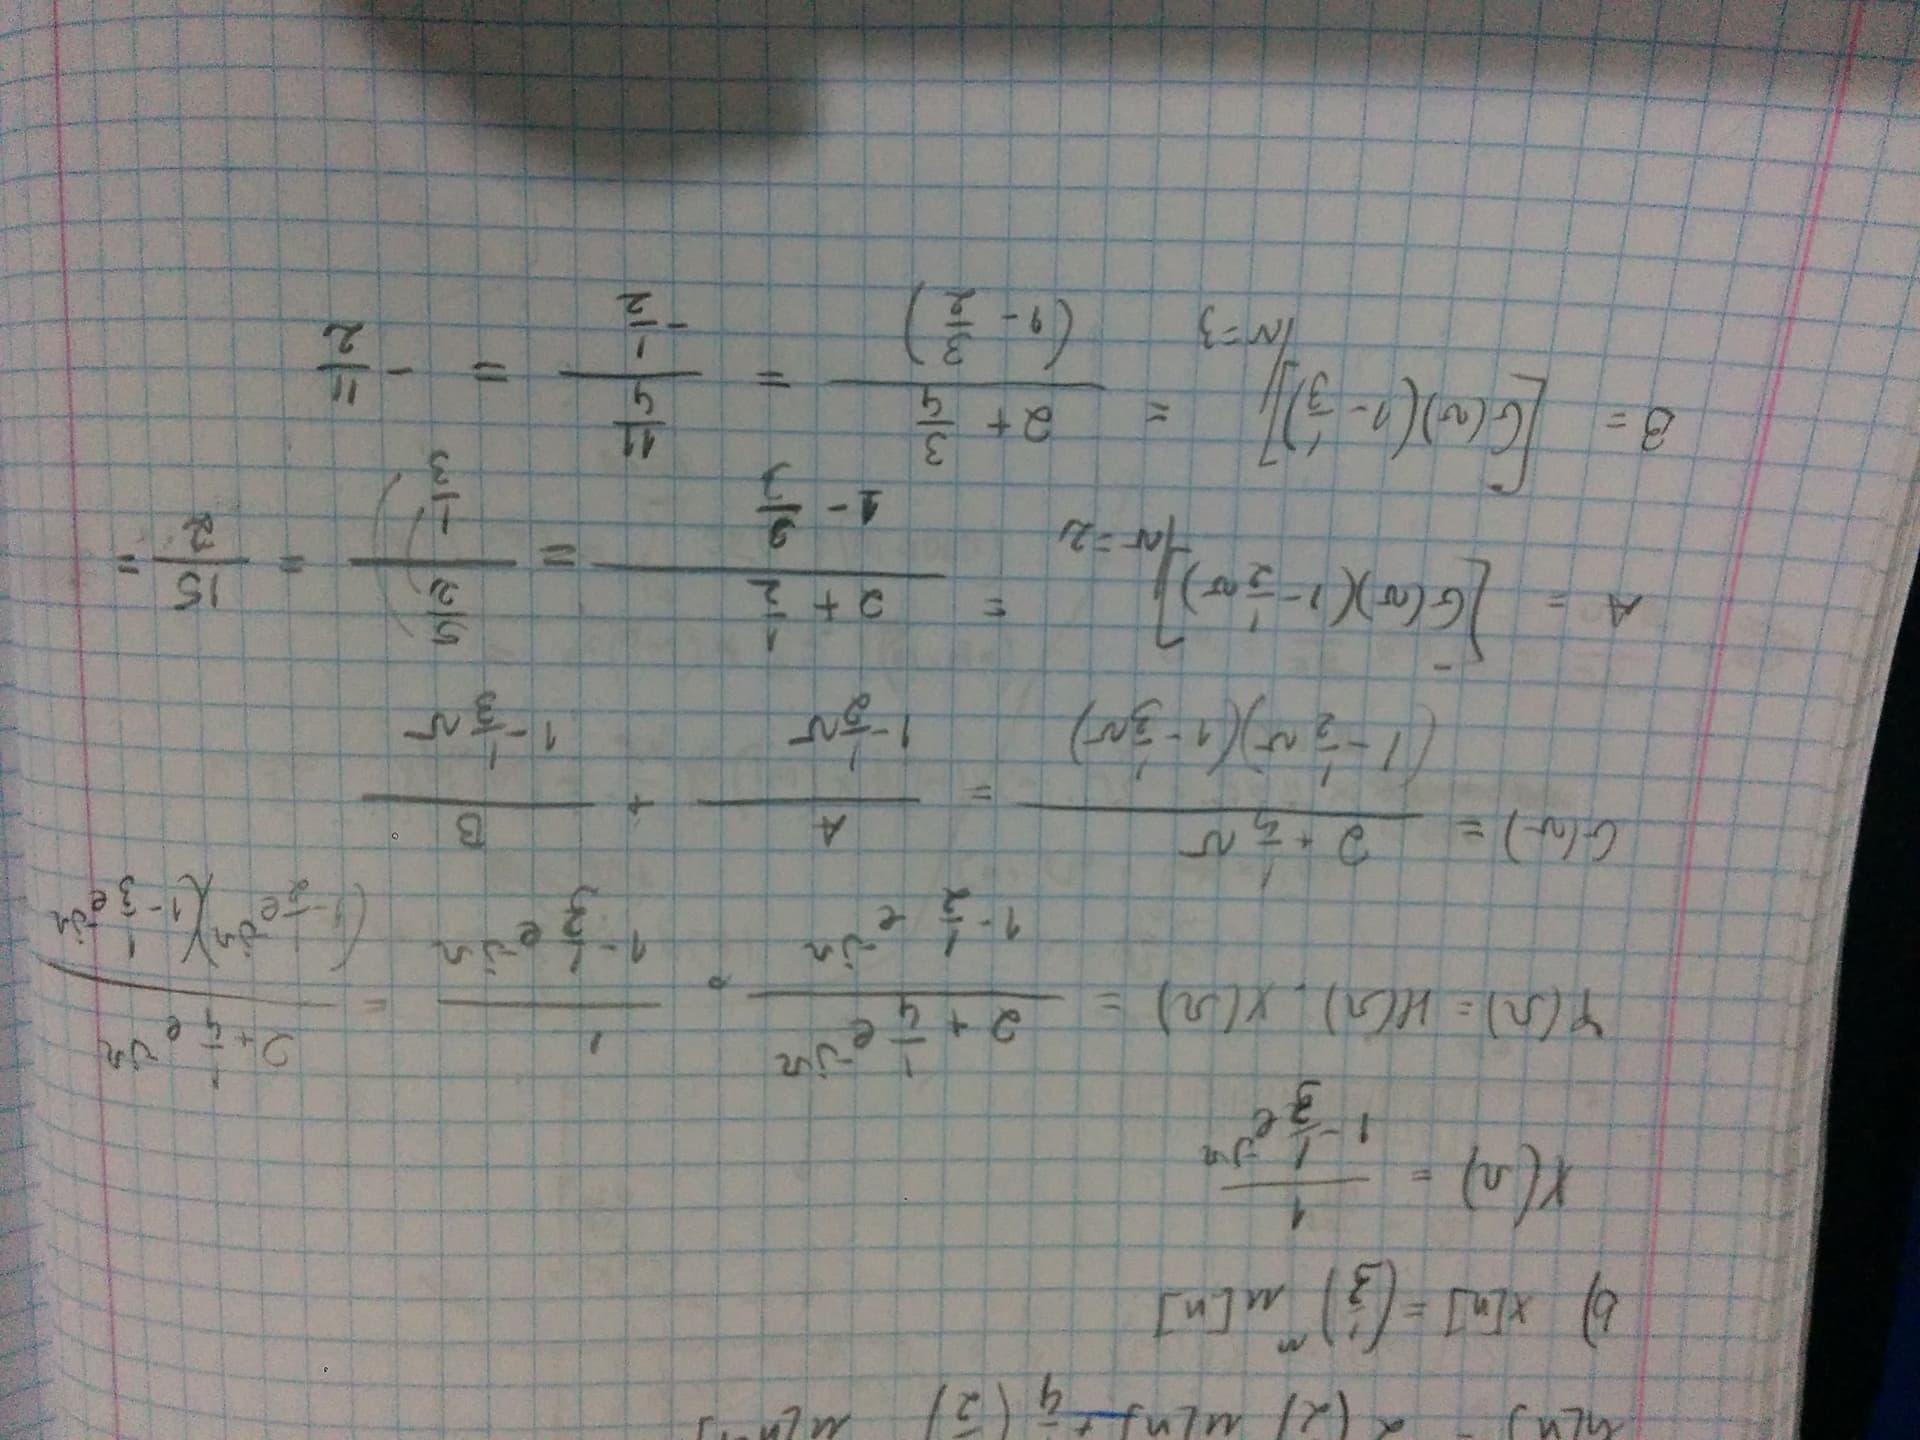 h[n] = 2 (1/2) u[n] + 1/4 (1/2) u[n-1]
b) x[n] = (1/3)^n u[n]
X(Ω) = 1 / (1 - 1/3 e^-jΩ)
Y(Ω) = H(Ω) . X(Ω) = (2 + 1/4 e^-jΩ) / (1 - 1/2 e^-jΩ) . 1 / (1 - 1/3 e^-jΩ) = (2 + 1/4 e^-jΩ) / ((1 - 1/2 e^-jΩ)(1 - 1/3 e^-jΩ))
G(v) = (2 + 1/4 v) / ((1 - 1/2 v)(1 - 1/3 v)) = A / (1 - 1/2 v) + B / (1 - 1/3 v)
A = [G(v)(1 - 1/2 v)]|v=2 = (2 + 1/2) / (1 - 2/3) = (5/2) / (1/3) = 15/2 =
B = [G(v)(1 - 1/3)]|v=3 = (2 + 3/4) / (1 - 3/2) = (11/4) / (-1/2) = - 11/2